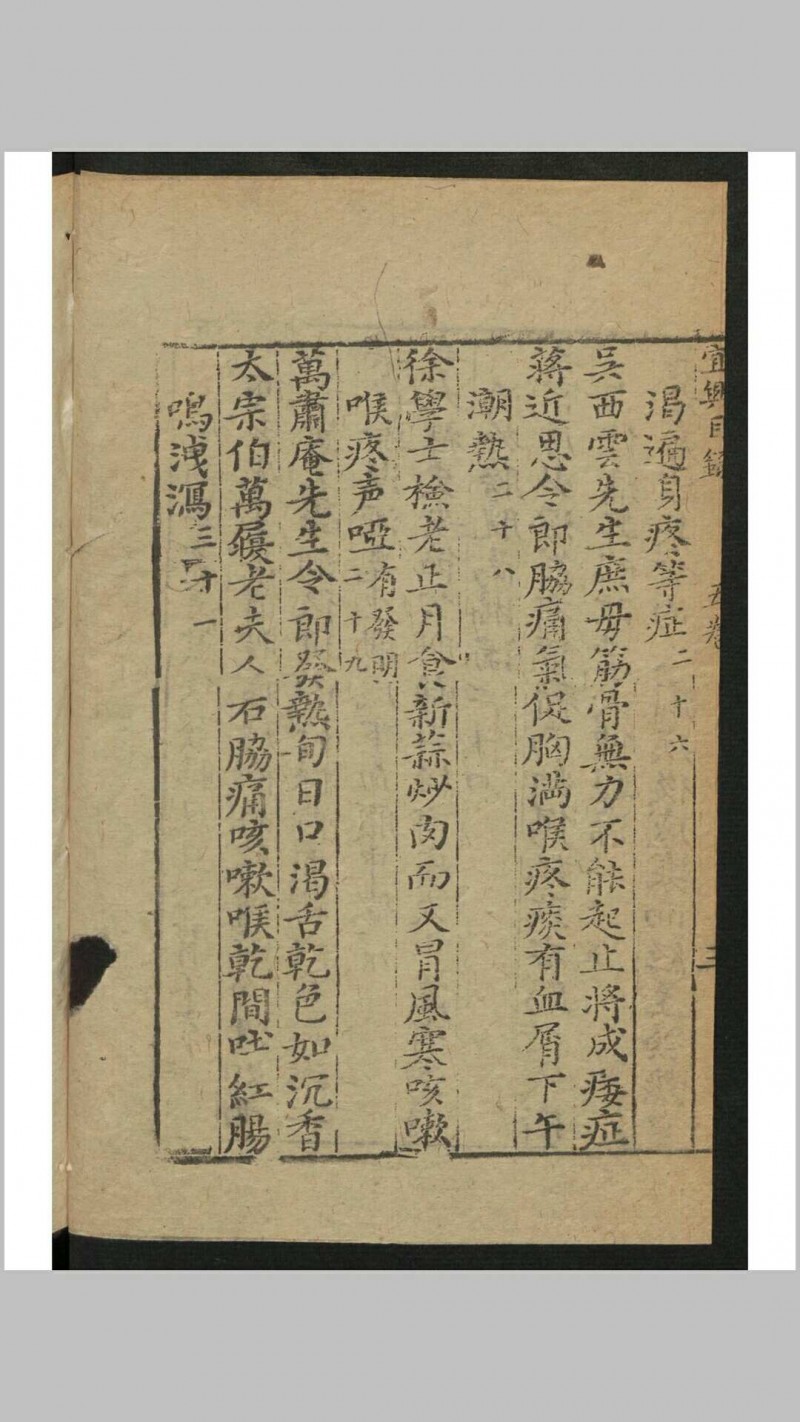 宜興目錄 五卷 三
渴遍身疼等症二十六
吳西雲先生庶母筋骨無力不能起止將成痿症
蔣近思令郎脇痛氣促胸滿喉疼痰有血屑下午
潮熱二十八
徐學士檢老正月食新蒜炒肉而又冒風寒咳嗽
喉疼声啞有發明二十九
萬肅庵先生令郎發熱旬日口渴舌乾色如沉香
太宗伯萬履老夫人石脇痛咳嗽喉乾間吐紅腸
鳴洩瀉三十一